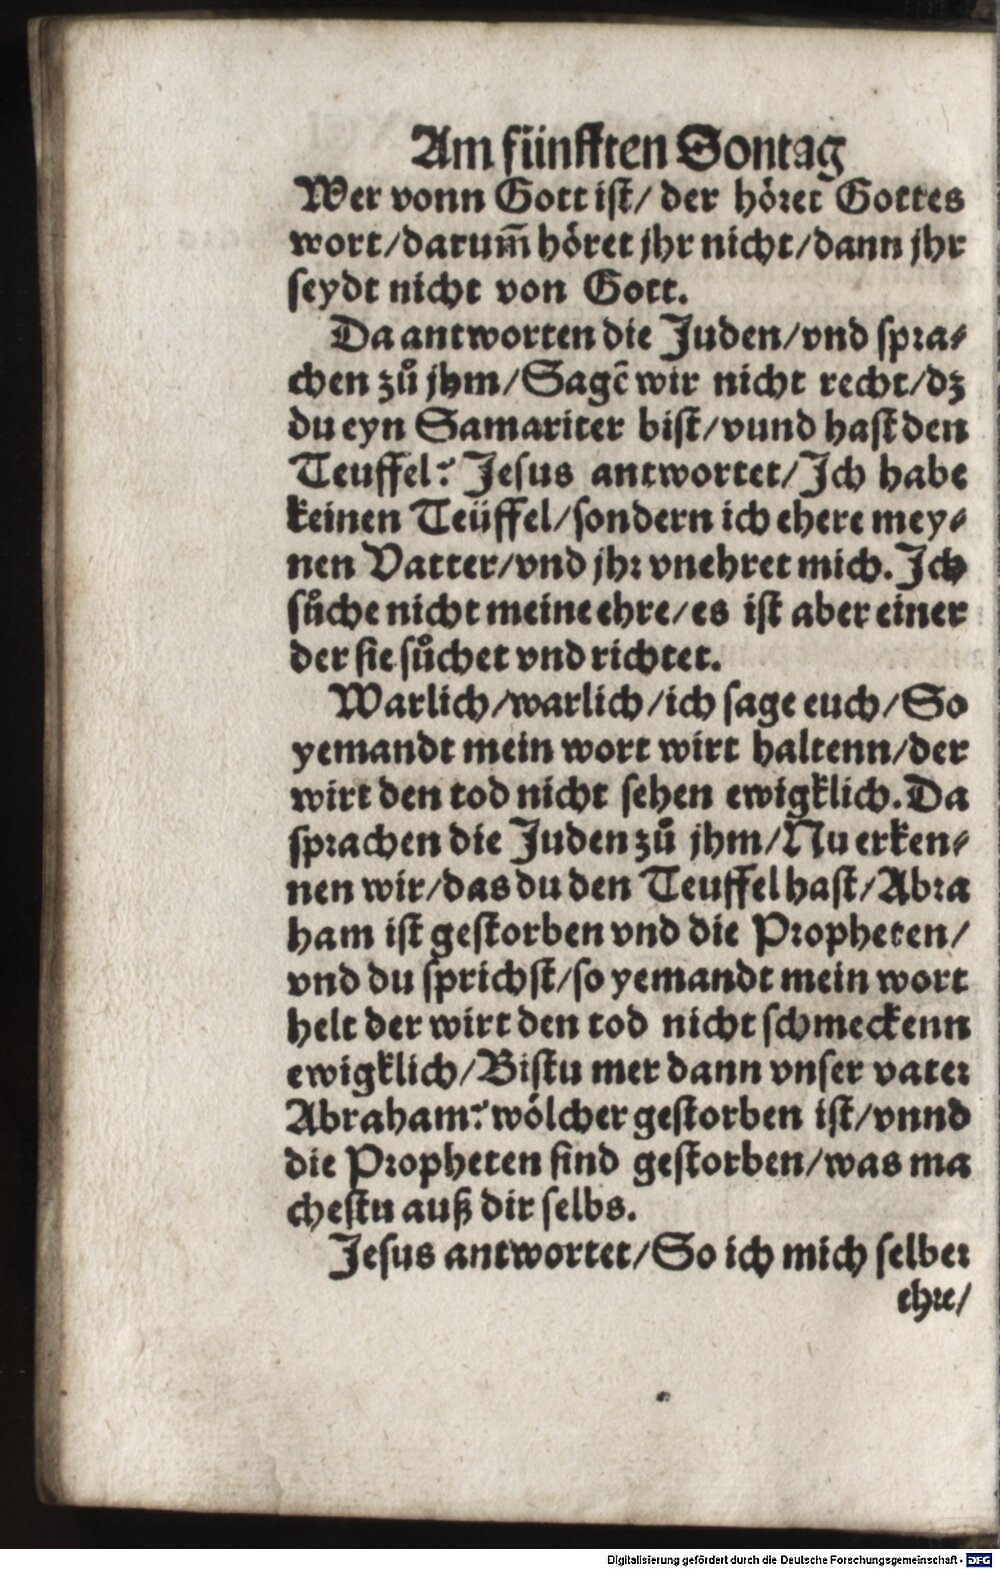 Am fünfften Sontag
Wer vonn Gott ist/ der höret Gottes
wort/darum̃ höret jhr nicht/dann jhr
seydt nicht von Gott.
Da antworten die Juden/vnd spra⸗
chen zů jhm/Sagẽ wir nicht recht/dz
du eyn Samariter bist/vund hast den
Teuffel? Jesus antwortet/Ich habe
keinen Teüffel/sondern ich ehere mey⸗
nen Vatter/vnd jhr vnehret mich. Ich
sůche nicht meine ehre/es ist aber einer
der sie sůchet vnd richtet.
Warlich/warlich/ich sage euch/So
yemandt mein wort wirt haltenn/der
wirt den tod nicht sehen ewigklich. Da
sprachen die Juden zů jhm/Nu erken⸗
nen wir/das du den Teuffel hast/Abra
ham ist gestorben vnd die Propheten/
vnd du sprichst/so yemandt mein wort
helt der wirt den tod nicht schmeckenn
ewigklich/Bistu mer dann vnser vater
Abraham? wölcher gestorben ist/vnnd
die Propheten sind gestorben/was ma
chestu auß dir selbs.
Jesus antwortet/So ich mich selber
ehre/
Digitalisierung gefördert durch die Deutsche Forschungsgemeinschaft - DFG